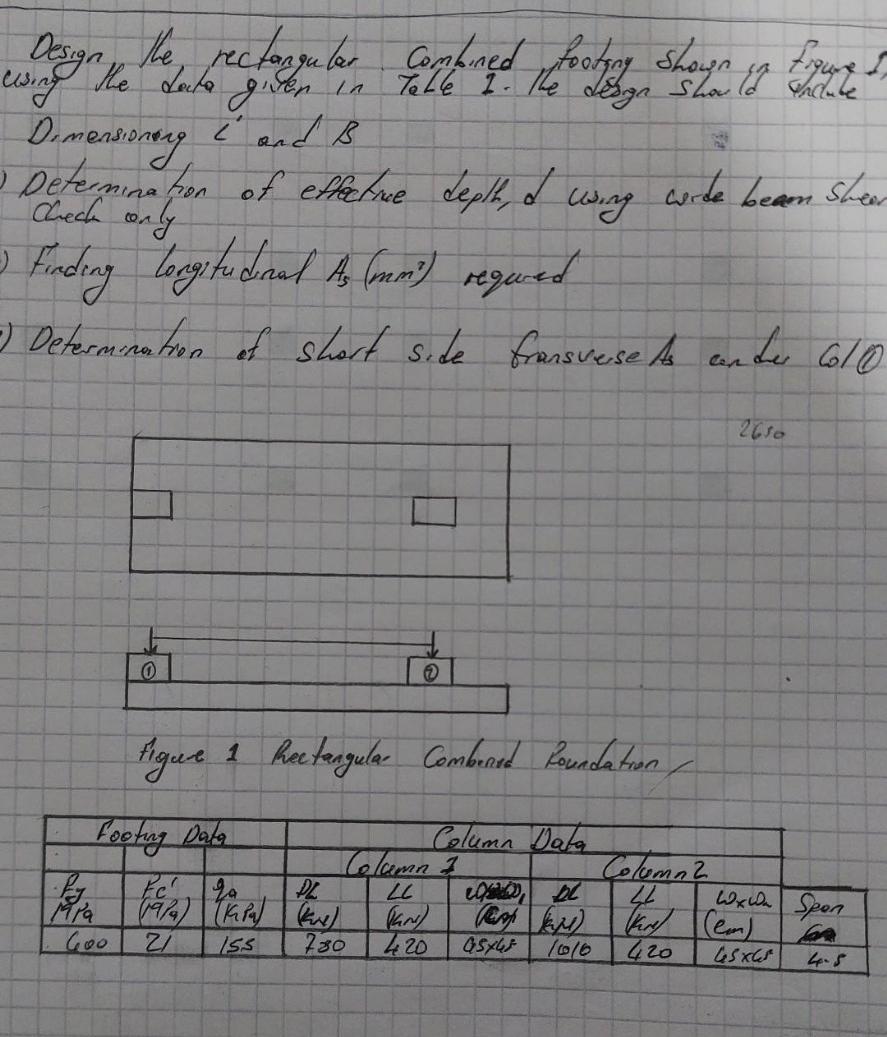 Design the rectangular Combined footing shown in Figure 1,
using the data given in Table 1. The design should include
Dimensioning L and B
) Determination of effective depth, d using wide beam shear
Check only
) Finding longitudinal As (mm²) required
) Determination of short side transverse As under Col ①
2650
① ②
Figure 1 Rectangular Combined Foundation
Footing Data Column Data
Column 1 Column 2
Fy Fc' qa DL LL DL LL WxW Span
MPa (MPa) (KPa) (KN) (KN) (KN) (KN) (cm)
400 21 155 780 420 45x45 1010 420 45x45 4.5